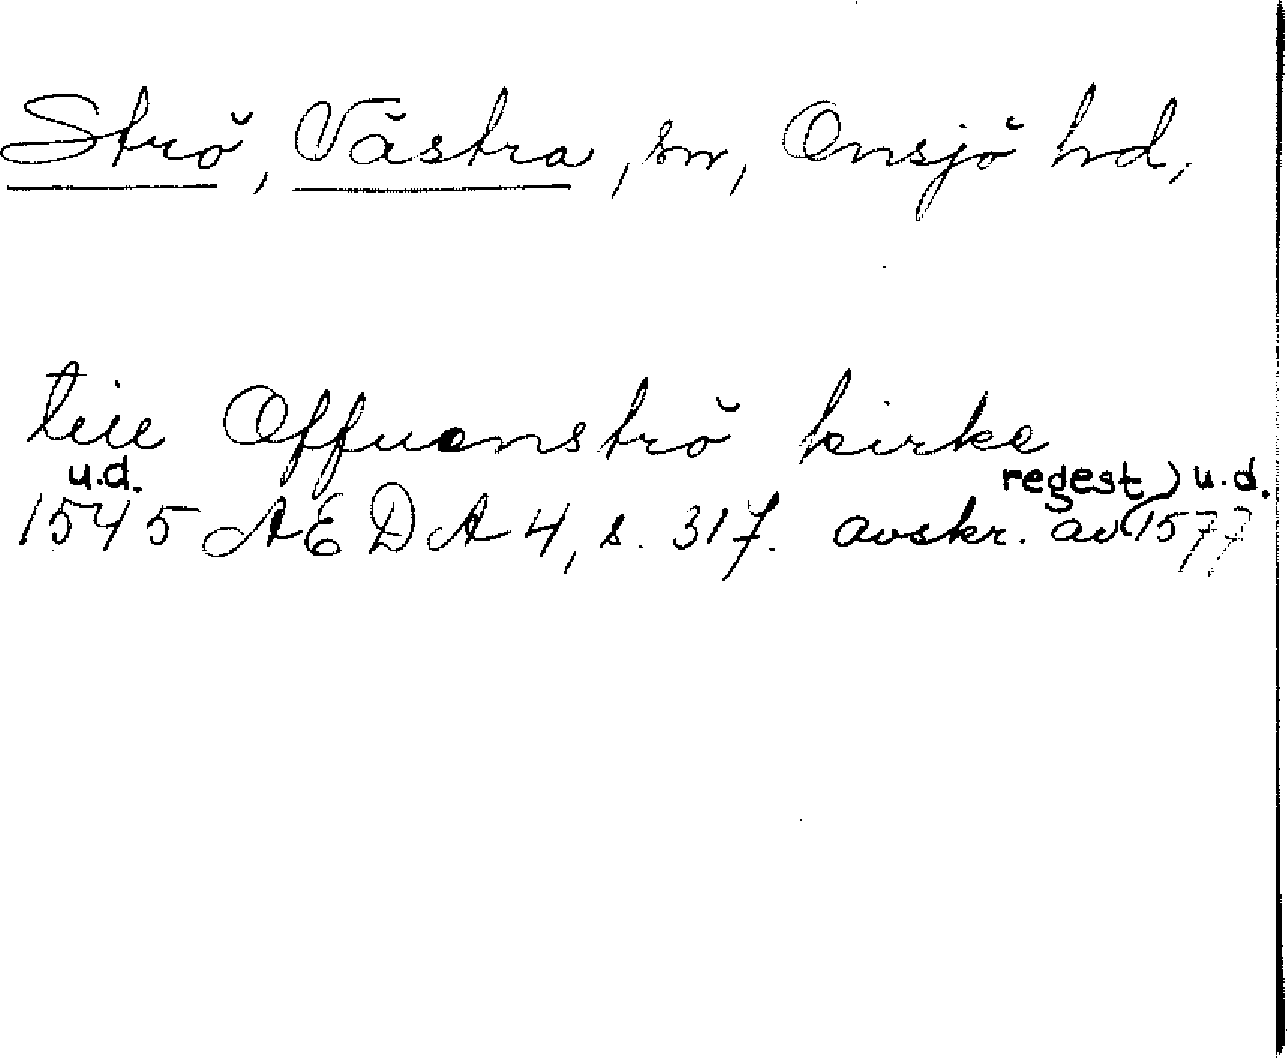 Strö, Västra, sn, Onsjö hd,
till Offuenströ kirke
u.d. regest) u.d.
1545 AEDA 4, s. 317. avskr. av (1577